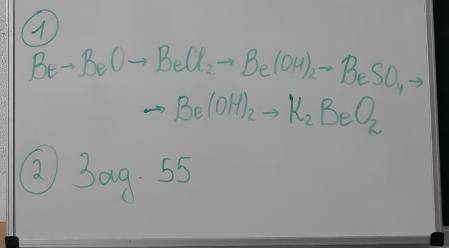 ①
Be → BeO → BeCl₂ → Be(OH)₂ → BeSO₄ →
→ Be(OH)₂ → K₂BeO₂
② Зад. 55